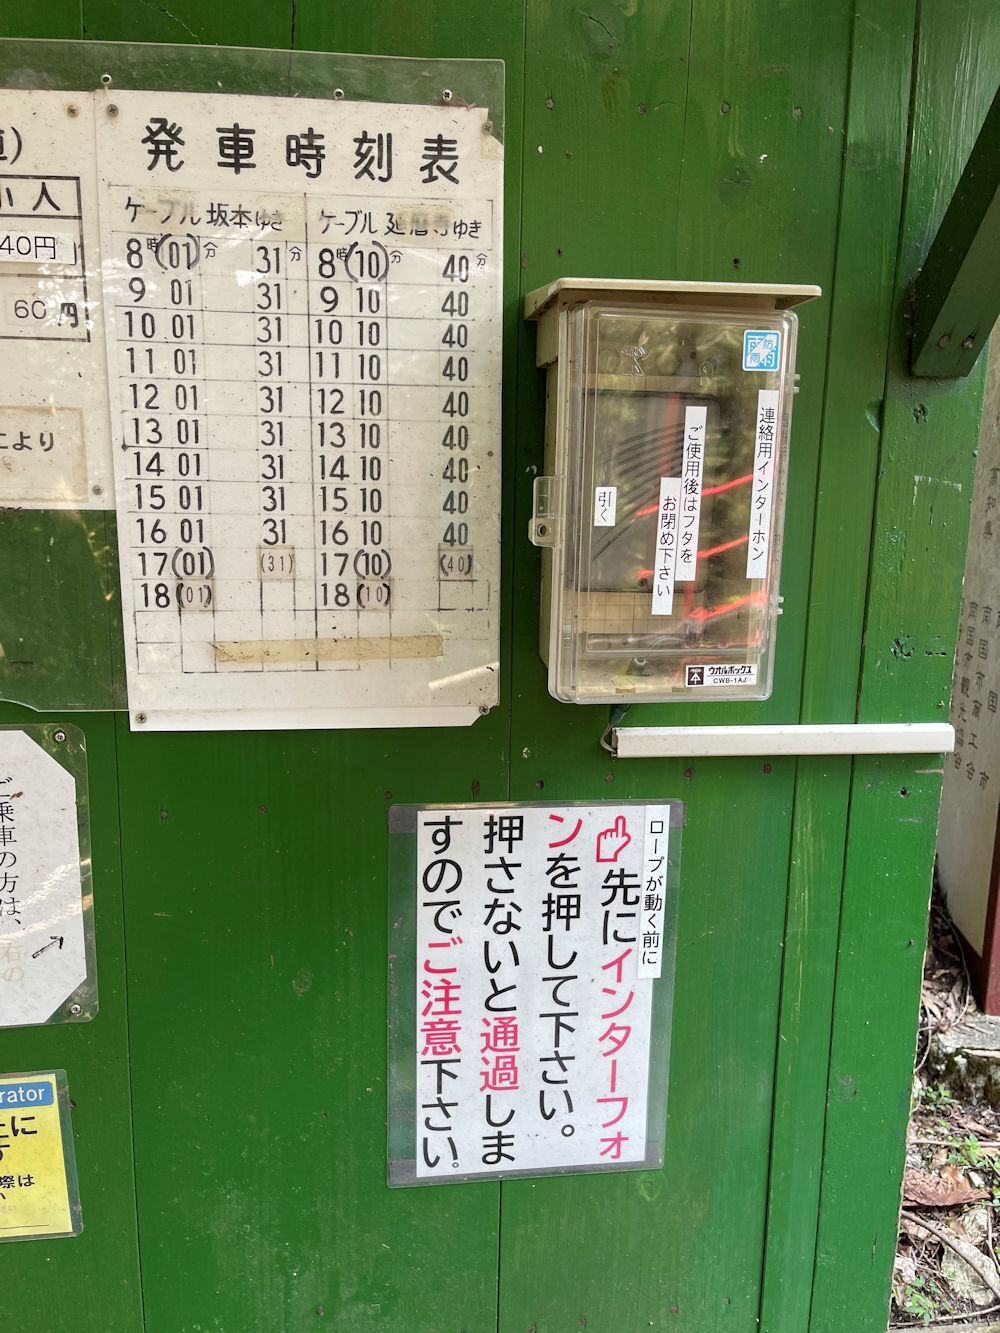 小人
40円
60円
より
発車時刻表
ケーブル坂本ゆき ケーブル延暦寺ゆき
8時(01)分 31分 8時(10)分 40分
9 01 31 9 10 40
10 01 31 10 10 40
11 01 31 11 10 40
12 01 31 12 10 40
13 01 31 13 10 40
14 01 31 14 10 40
15 01 31 15 10 40
16 01 31 16 10 40
17(01) (31) 17(10) (40)
18(01) 18(10)
防雨
連絡用インターホン
ご使用後はフタを
お閉め下さい
引く
ウオルボックス
CWB-1AJ
ロープが動く前に
先にインターフォ
ンを押して下さい。
押さないと通過しま
すのでご注意下さい。
ご乗車の方は、右の
rator
に
際は
南国市観光協会
南国市商工会
南国市
高知県